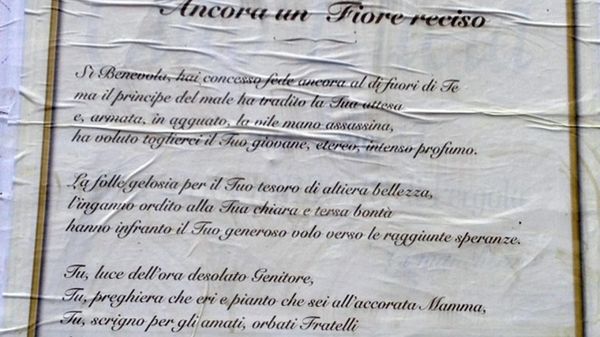 Ancora un Fiore reciso
Sì Benevola, hai concesso fede ancora al di fuori di Te
ma il principe del male ha tradito la Tua attesa
e, armata, in agguato, la vile mano assassina,
ha voluto toglierci il Tuo giovane, etereo, intenso profumo.
La folle gelosia per il Tuo tesoro di altiera bellezza,
l'inganno ordito alla Tua chiara e tersa bontà
hanno infranto il Tuo generoso volo verso le raggiunte speranze.
Tu, luce dell'ora desolato Genitore,
Tu, preghiera che eri e pianto che sei all'accorata Mamma,
Tu, scrigno per gli amati, orbati Fratelli